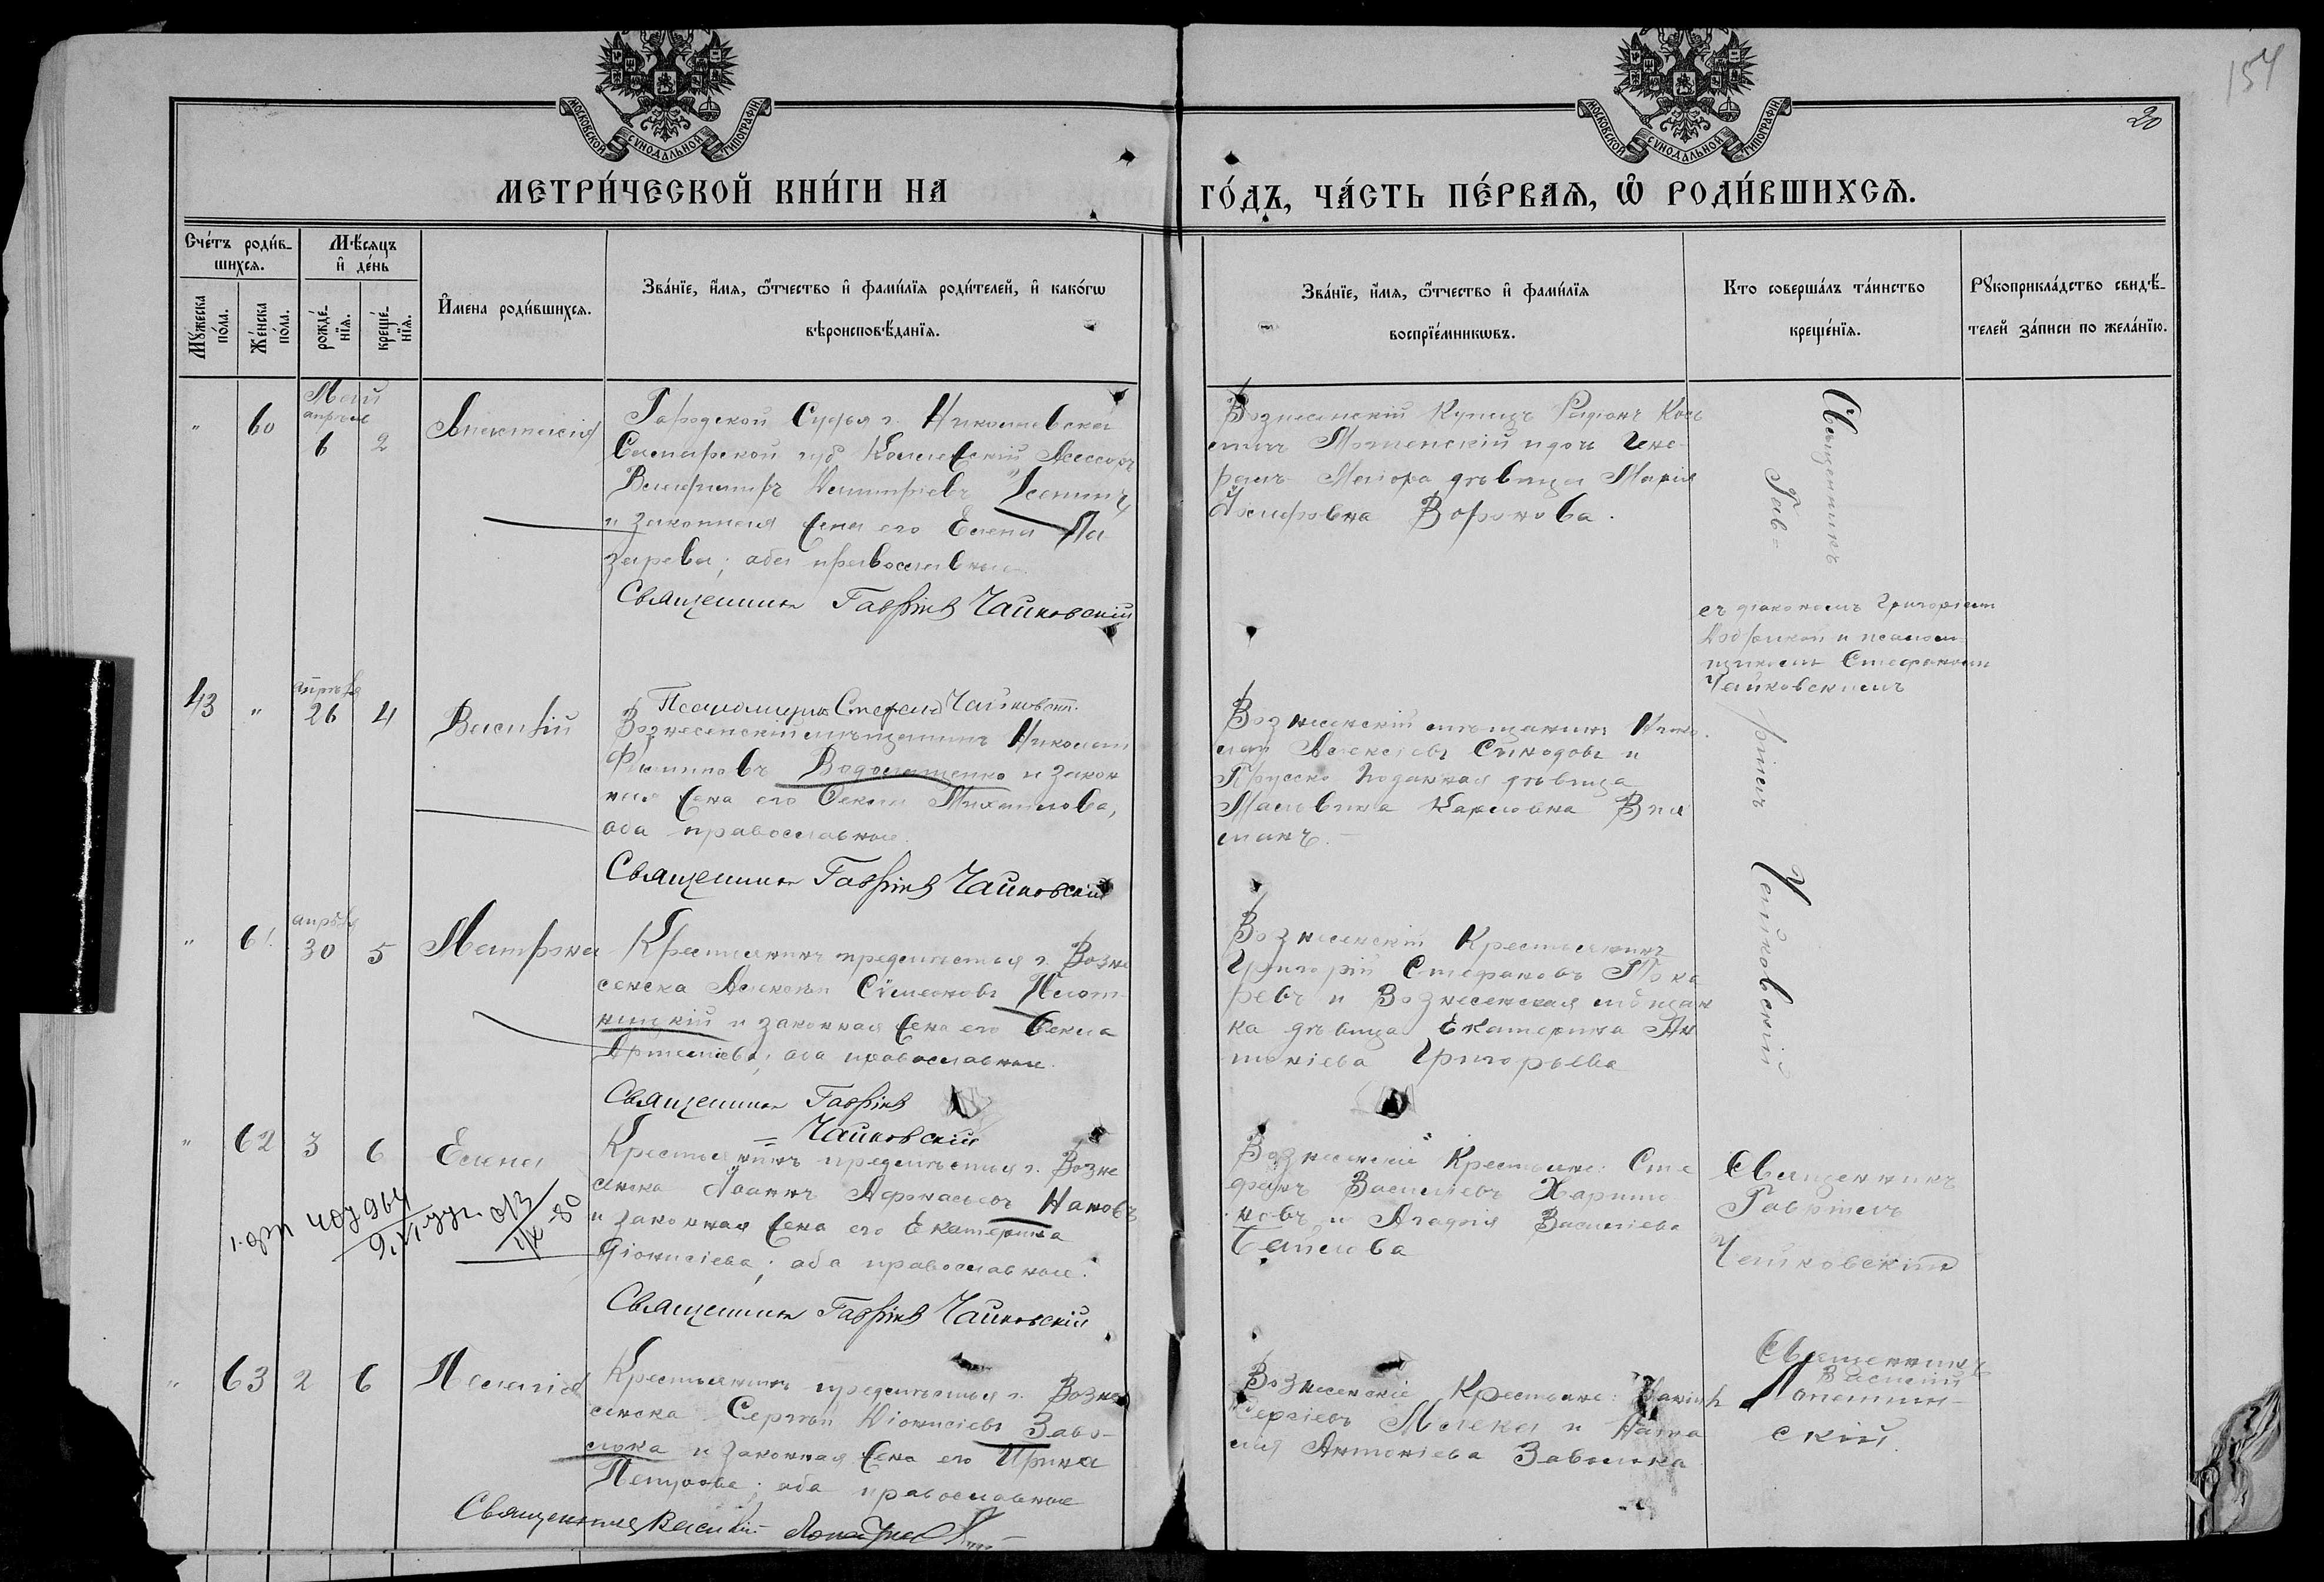 154
20
МОСКОВСКОЙ СѴНОДАЛЬНОЙ ТИПОГРАФІИ
МОСКОВСКОЙ СѴНОДАЛЬНОЙ ТИПОГРАФІИ
МЕТРИ́ЧЕСКОЙ КНИ́ГИ НА
ГО́ДЪ, ЧА́СТЬ ПЕ́РВАЯ, Ѽ РОДИ́ВШИХСЯ.
Сче́тъ роди́в-
шихся.
Мꙋ́жеска по́ла.
Же́нска по́ла.
Мѣ́сяцъ
и҆ де́нь
рожде́-
нїя.
креще́-
нїя.
И҆мена роди́вшихся.
Зва́нїе, и҆́мя, ѻ҆́тчество и҆ фами́лїя роди́телей, и҆ како́гѡ
вѣроисповѣ́данїя.
Зва́нїе, и҆́мя, ѻ҆́тчество и҆ фами́лїя
воспрїе́мникѡвъ.
Кто соверша́лъ та́инство
креще́нїя.
Рꙋкоприкла́дство свидѣ́-
телей за́писи по жела́нїю.
Май
" 60 апреля 6 2 Анастасія
Городской Судья г. Николаевска
Самарской губ Коллежскій Ассесоръ
и законная жена его Елена Ла
зарева; оба православные
Священникъ Гавріилъ Чайковскій
Вознесенскій Купецъ
Маіора дѣвица Марія
Іосифовна Воронова.
Священникъ
Гав-
съ діакономъ Григоріемъ
и псалом
щикомъ Стефаномъ
Чайковскимъ
43 " апрѣля 26 4 Василій
Псаломщикъ Стефанъ Чайковскій.
Вознесенскій мѣщанинъ Николай
Филиповъ Водолащенко и закон
ная жена его Михаилова,
оба православные.
Священникъ Гавріилъ Чайковскій
Вознесенскій мѣщанинъ Нико
лай Алексѣевъ и
Прусско подданная дѣвица
Мальвина Карловна Вил
манъ.
ріилъ
Чайковскій
" 61. апрѣля 30 5 Матрона
Крестьянинъ предмѣстья г. Возне
сенска Алексѣй Симеоновъ Плот
ницкій и законная жена его Ѳекла
оба православные.
Священникъ Гавріилъ
= Чайковскій
Вознесенскій Крестьянинъ
Григорій Стефановъ Тока
ревъ и Вознесенская мѣщан
ка дѣвица Екатерина Ан
тоніева Григорьева
" 62 3 6 Елена
Крестьянинъ предмѣстья г. Возне
сенска Іоаннъ Афанасьевъ Наковъ
и законная жена его Екатерина
Діонисіева; оба православные.
Священникъ Гавріилъ Чайковскій
Вознесенскіе Крестьяне: Сте
фанъ Васильевъ Харито
новъ и Агафія Васильева
Священникъ
Гавріилъ
Чайковскій
" 63 2 6 Пелагія
Крестьянинъ предмѣстья г. Возне
сенска Сергѣй Діонисіевъ Заво-
лока и законная жена его Ирина
Петрова; оба православные
Священникъ Василій
Вознесенскіе Крестьяне:
Сергіевъ и Ната
лія Антоніева Заволока
Священникъ
Василій
скій.